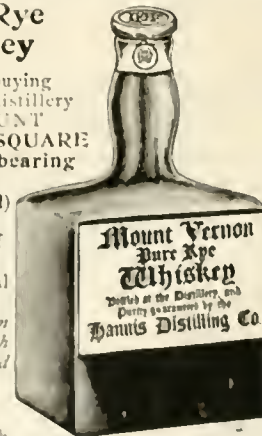 Rye
ey
uying
istillery
UNT
SQUARE
bearing
Mount Vernon
Pure Rye
Whiskey
Bottled at the Distillery, and
Purity guaranteed by the
Hannis Distilling Co.